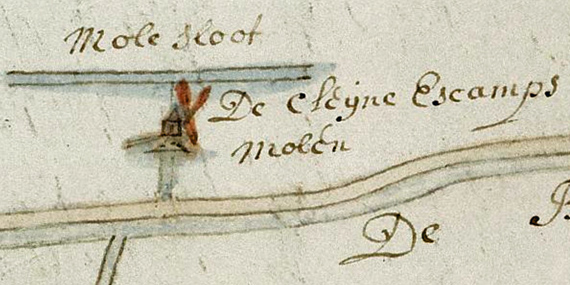 Mole sloot
De Cleÿne Escamps
Molen
De